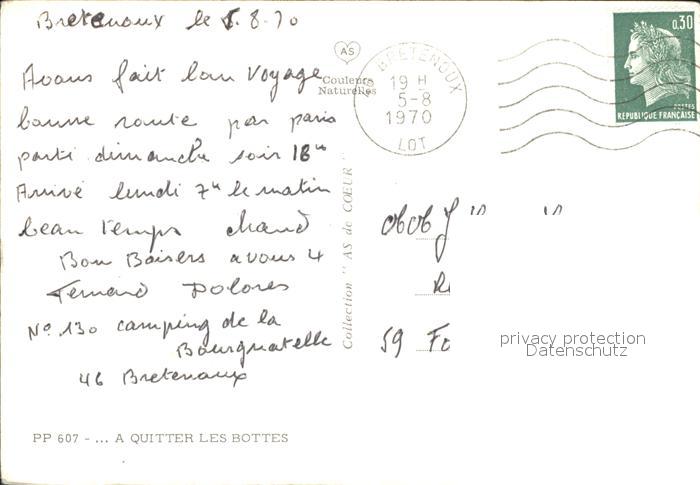 Bretenoux le 5.8.70
Avons fait bon voyage
bonne route par paris
parti dimanche soir 18H
Arrivé lundi 7H le matin
beau temps chaud
Bon Baisers a vous 4
Fernand Dolores
No. 130 camping de la
Bourgnatelle
46 Bretenoux
PP 607 - ... A QUITTER LES BOTTES
AS
Couleurs
Naturelles
Collection " AS de COEUR "
46 BRETENOUX
19 H
5-8
1970
LOT
0,30
POSTES
REPUBLIQUE FRANÇAISE
59 Fo
privacy protection
Datenschutz